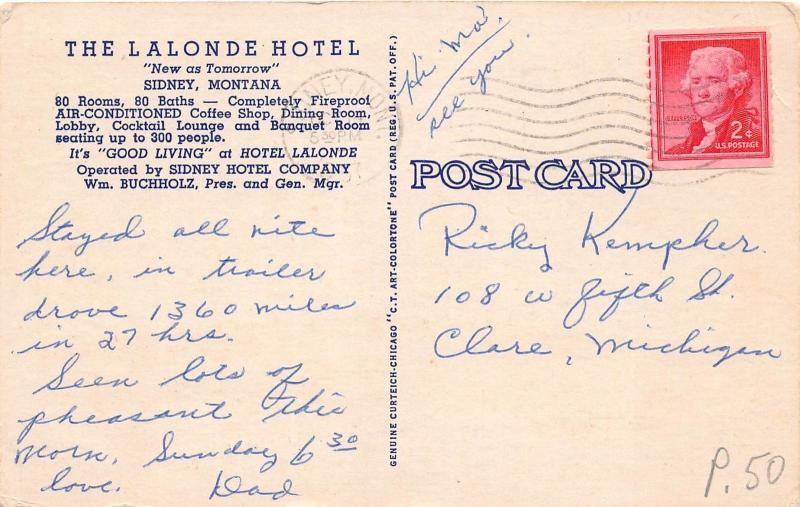 THE LALONDE HOTEL
"New as Tomorrow"
SIDNEY, MONTANA
80 Rooms, 80 Baths — Completely Fireproof
AIR-CONDITIONED Coffee Shop, Dining Room,
Lobby, Cocktail Lounge and Banquet Room
seating up to 300 people.
It's "GOOD LIVING" at HOTEL LALONDE
Operated by SIDNEY HOTEL COMPANY
Wm. BUCHHOLZ, Pres. and Gen. Mgr.
Stayed all nite
here, in trailer
drove 1360 miles
in 27 hrs.
Seen lots of
pheasant this
morn, Sunday 6 30
love. Dad
GENUINE CURTEICH-CHICAGO "C.T. ART-COLORTONE" POST CARD (REG. U.S. PAT. OFF.)
Hi Ma.
see you.
SIDNEY, MONT
5 30 PM
2¢
U.S. POSTAGE
POST CARD
Ricky Kempher.
108 W Fifth St.
Clare, Michigan
P.50